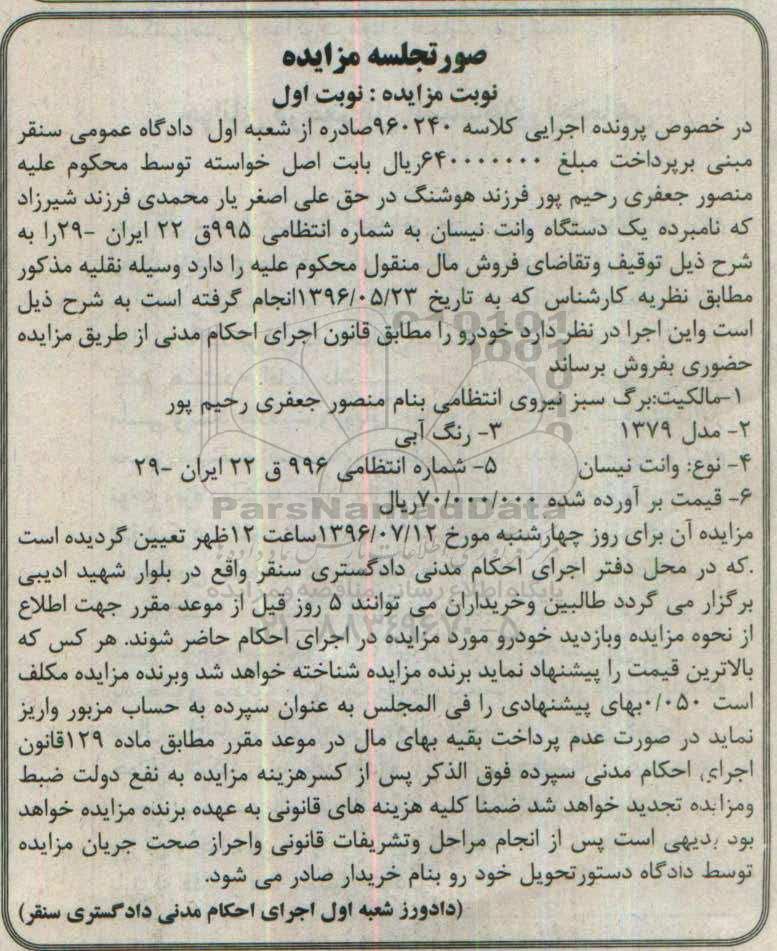 صورتجلسه مزایده
نوبت مزایده : نوبت اول
در خصوص پرونده اجرایی کلاسه ۹۶۰۲۴۰صادره از شعبه اول دادگاه عمومی سنقر
مبنی برپرداخت مبلغ ۶۴۰۰۰۰۰۰۰ریال بابت اصل خواسته توسط محکوم علیه
منصور جعفری رحیم پور فرزند هوشنگ در حق علی اصغر یار محمدی فرزند شیرزاد
که نامبرده یک دستگاه وانت نیسان به شماره انتظامی ۹۹۵ق ۲۲ ایران -۲۹را به
شرح ذیل توقیف وتقاضای فروش مال منقول محکوم علیه را دارد وسیله نقلیه مذکور
مطابق نظریه کارشناس که به تاریخ ۱۳۹۶/۰۵/۲۳انجام گرفته است به شرح ذیل
است واین اجرا در نظر دارد خودرو را مطابق قانون اجرای احکام مدنی از طریق مزایده
حضوری بفروش برساند
۱-مالکیت:برگ سبز نیروی انتظامی بنام منصور جعفری رحیم پور
۲- مدل ۱۳۷۹ ۳- رنگ آبی
۴- نوع: وانت نیسان ۵- شماره انتظامی ۹۹۶ ق ۲۲ ایران -۲۹
۶- قیمت بر آورده شده ۷۰/۰۰۰/۰۰۰ریال
ParsNamadData
مزایده آن برای روز چهارشنبه مورخ ۱۳۹۶/۰۷/۱۲ساعت ۱۲ظهر تعیین گردیده است
.که در محل دفتر اجرای احکام مدنی دادگستری سنقر واقع در بلوار شهید ادیبی
پایگاه اطلاع رسانی مناقصه و مزایده
برگزار می گردد طالبین وخریداران می توانند ۵ روز قبل از موعد مقرر جهت اطلاع
از نحوه مزایده وبازدید خودرو مورد مزایده در اجرای احکام حاضر شوند. هر کس که
بالاترین قیمت را پیشنهاد نماید برنده مزایده شناخته خواهد شد وبرنده مزایده مکلف
است ۰/۰۵۰بهای پیشنهادی را فی المجلس به عنوان سپرده به حساب مزبور واریز
نماید در صورت عدم پرداخت بقیه بهای مال در موعد مقرر مطابق ماده ۱۲۹قانون
اجرای احکام مدنی سپرده فوق الذکر پس از کسرهزینه مزایده به نفع دولت ضبط
ومزایده تجدید خواهد شد ضمنا کلیه هزینه های قانونی به عهده برنده مزایده خواهد
بود بدیهی است پس از انجام مراحل وتشریفات قانونی واحراز صحت جریان مزایده
توسط دادگاه دستورتحویل خود رو بنام خریدار صادر می شود.
(دادورز شعبه اول اجرای احکام مدنی دادگستری سنقر)